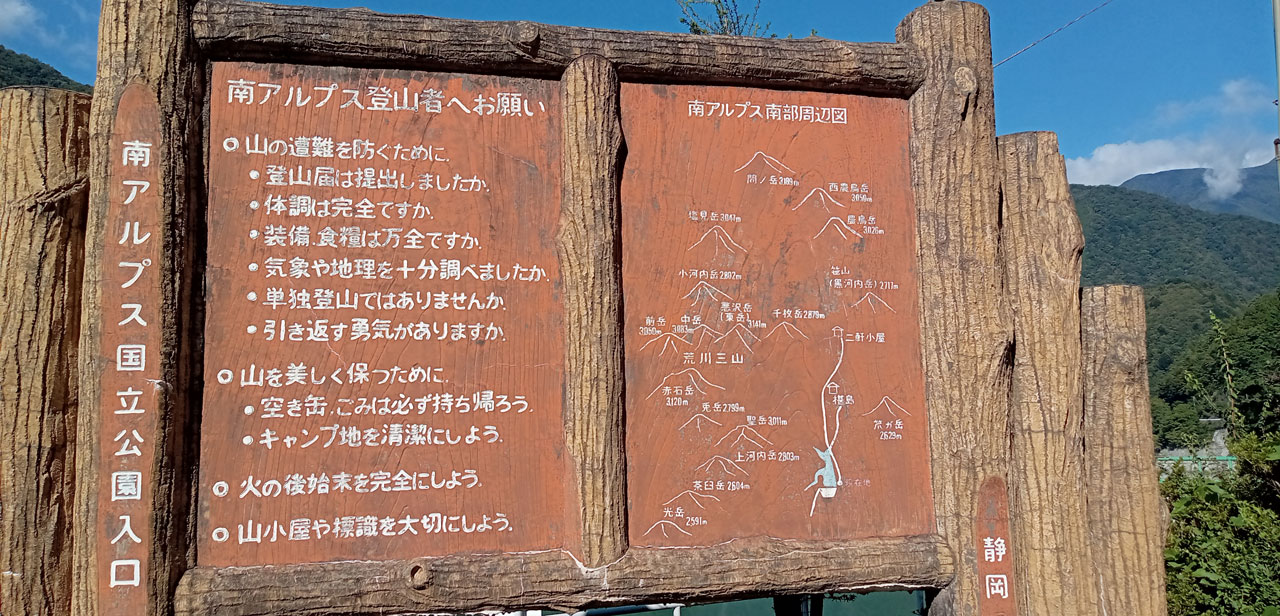 南アルプス国立公園入口
南アルプス登山者へお願い
山の遭難を防ぐために.
・登山届は提出しましたか.
・体調は完全ですか.
・装備.食糧は万全ですか.
・気象や地理を十分調べましたか.
・単独登山ではありませんか.
・引き返す勇気がありますか.
山を美しく保つために.
・空き缶.ごみは必ず持ち帰ろう.
・キャンプ地を清潔にしよう.
火の後始末を完全にしよう.
山小屋や標識を大切にしよう.
南アルプス南部周辺図
間ノ岳 3.189m
西農鳥岳
3.050m
農鳥岳
3.026m
塩見岳 3.047m
小河内岳 2.802m
笹山
(黒河内岳) 2.717m
悪沢岳
(東岳)
3.141m
千枚岳 2.879m
前岳
3.050m
中岳
3.083m
荒川三山
二軒小屋
赤石岳
3.120m
椹島
兎岳 2.799m
聖岳 3.011m
茶臼岳 2.604m
上河内岳 2.803m
2.629m
光岳
2.591m
現在地
静岡